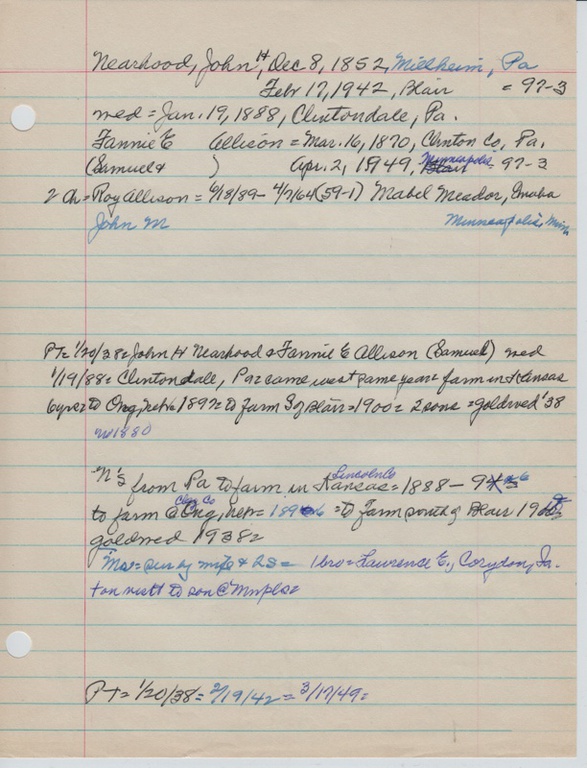 Nearhood, John H, Dec 8, 1852, Millheim, Pa
Febr 17, 1942, Blair = 97-3
wed = Jan. 19, 1888, Clintondale, Pa.
Fannie E Allison = Mar. 16, 1870, Clinton Co, Pa.
(Samuel & ) Apr. 2, 1949, Blair Minneapolis 97-3
2 Ch = Roy Allison = 9/18/89 - 4/2/64 (59-1) Mabel Meador, Omaha
John M Minneapolis, Minn
PT = 1/20/38 = John H Nearhood & Fannie E Allison (Samuel) wed
1/19/88 = Clintondale, Pa = came west same year = farm in Kansas
6 yrs = to Ong, Nebr 1897 = to farm S of Blair = 1900 = 2 sons = goldwed '38
1880
N's from Pa to farm in Lincoln Co Kansas = 1888 - 94
to farm @ Clay Co Ong, Nebr = 1896 = to farm south of Blair
goldwed 1938 =
Mr = surv by wife & 2 S = 1 bro = Lawrence E., Corydon, Ia.
+ on visit to son @ Mnpls =
PT = 1/20/38 = 2/19/42 = 3/17/49 =